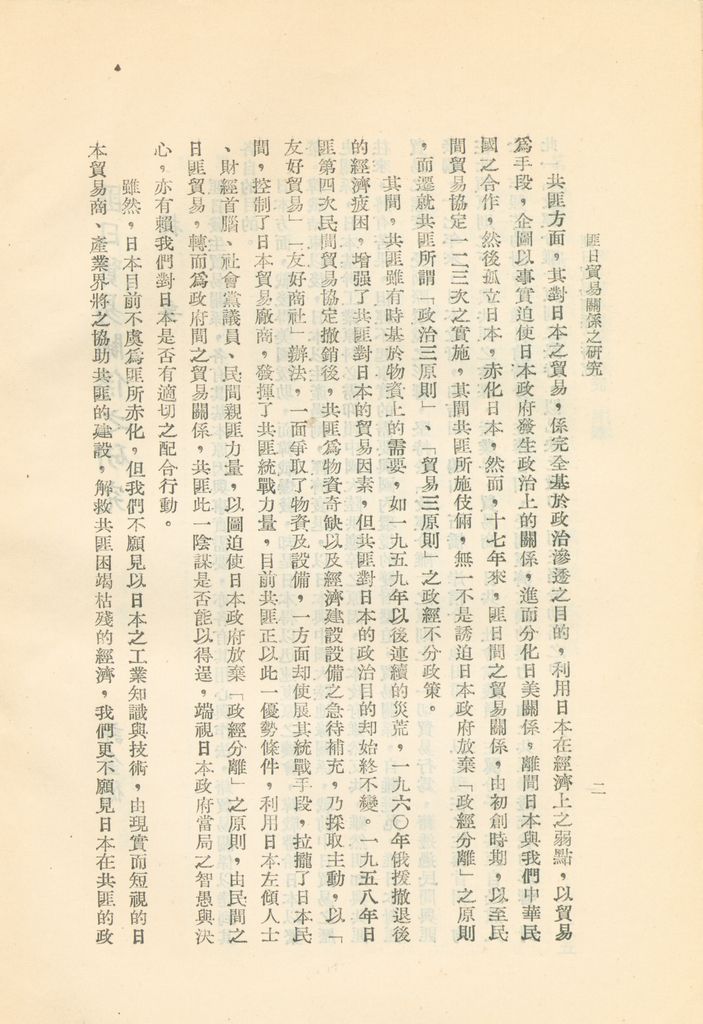 匪日貿易關係之研究
二
共匪方面，其對日本之貿易，係完全基於政治滲透之目的，利用日本在經濟上之弱點，以貿易
爲手段，企圖以事實迫使日本政府發生政治上的關係，進而分化日美關係，離間日本與我們中華民
國之合作，然後孤立日本，赤化日本，然而，十七年來，匪日間之貿易關係，由初創時期，以至民
間貿易協定一二三次之實施，其間共匪所施伎倆，無一不是誘迫日本政府放棄「政經分離」之原則
，而遷就共匪所謂「政治三原則」、「貿易三原則」之政經不分政策。
其間，共匪雖有時基於物資上的需要，如一九五九年以後連續的災荒，一九六〇年俄援撤退後
的經濟疲困，增强了共匪對日本的貿易因素，但共匪對日本的政治目的却始終不變。一九五八年日
匪第四次民間貿易協定撤銷後，共匪爲物資奇缺以及經濟建設設備之急待補充，乃採取主動，以「
友好貿易」「友好商社」辦法，一面爭取了物資及設備，一方面却使展其統戰手段，拉攏了日本民
間，控制了日本貿易廠商，發揮了共匪統戰力量，目前共匪正以此一優勢條件，利用日本左傾人士
、財經首腦、社會黨議員、民間親匪力量，以圖迫使日本政府放棄「政經分離」之原則，由民間之
日匪貿易，轉而爲政府間之貿易關係，共匪此一陰謀是否能以得逞，端視日本政府當局之智愚與決
心，亦有賴我們對日本是否有適切之配合行動。
雖然，日本目前不虞爲匪所赤化，但我們不願見以日本之工業知識與技術，由現實而短視的日
本貿易商、產業界將之協助共匪的建設，解救共匪困竭枯殘的經濟，我們更不願見日本在共匪的政